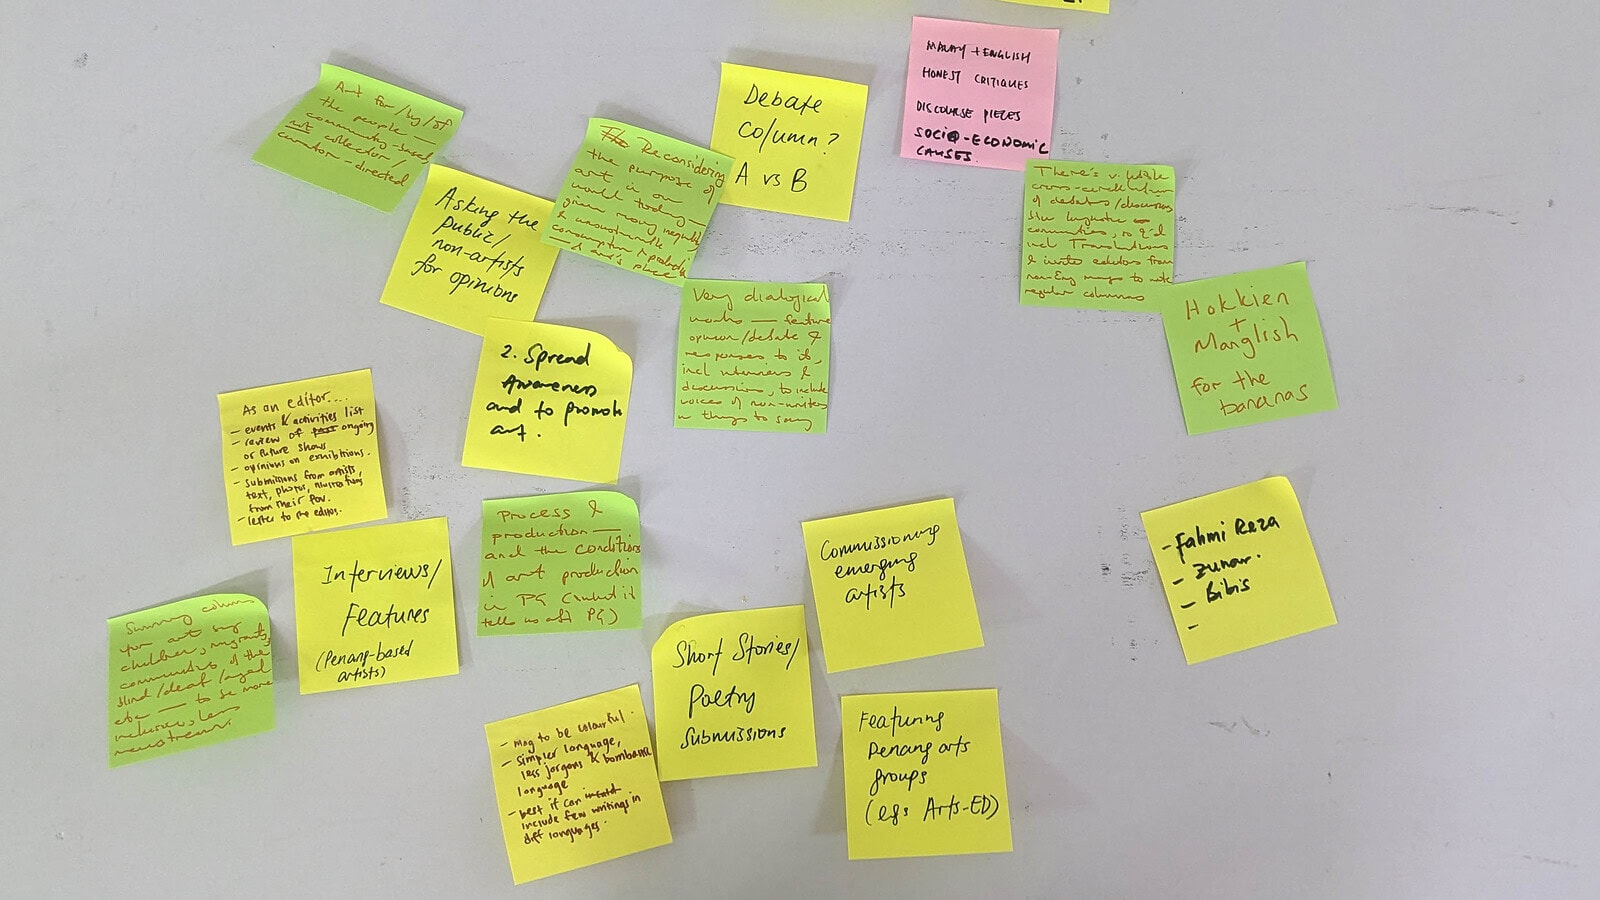 MALAY + ENGLISH
HONEST CRITIQUES
DISCOURSE PIECES
SOCIO-ECONOMIC
CAUSES.
Art for/by/of
the people —
community-based,
not collector/
curator-directed
Debate
column?
A vs B
Reconsidering
the purpose of
art in our
world today —
given rising inequality
& unsustainable
consumption & production
— & art's place
Asking the
public/
non-artists
for opinions
There's v. little
cross-circulation
of debates/discussions
btw linguistic
communities, so
incl Translations
& invite editors from
non-Eng mags to write
regular columns
Hokkien
+
Manglish
for the
bananas
Very dialogical
works — feature
opinion/debate &
responses to it,
incl interviews &
discussions, to include
voices of non-writers
w things to say
2. Spread
Awareness
and to promote
art.
As an editor....
- events & activities list
- review of past ongoing
or future shows
- opinions on exhibitions.
- submissions from artists,
text, photos, illustrations
from their pov.
- letter to the editor.
Process &
production —
and the conditions
of art production
in PG (what it
tells us abt PG)
Interviews/
Features
(Penang-based
artists)
Commissioning
emerging
artists
- Fahmi Reza
- Zunar.
- Bibis
-
column
for art by
children, migrants,
communities of the
blind/deaf/aged
etc — to be more
inclusive, less
mainstream.
Short Stories/
Poetry
Submissions
- Mag to be colourful.
- simpler language,
less jargons & bombastic
language
- best if can
include few writings in
diff languages.
Featuring
Penang arts
groups
(egs Arts-ED)